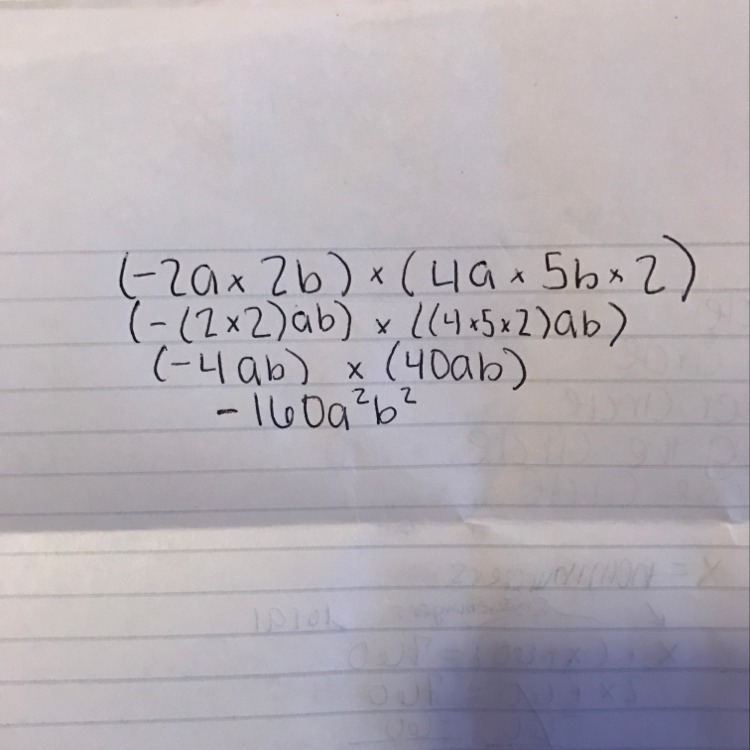 (-2a × 2b) × (4a × 5b × 2)
(-(2×2)ab) × ((4×5×2)ab)
(-4ab) × (40ab)
-160a²b²